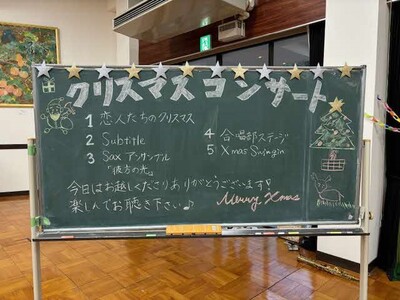 クリスマスコンサート
1 恋人たちのクリスマス
2 Subtitle
3 Sax アンサンブル
「彼方の光」
4 合唱部ステージ
5 Xmas Swingin
今日はお越しくださりありがとうございます!
楽しんでお聴き下さい♪
Merry Xmas